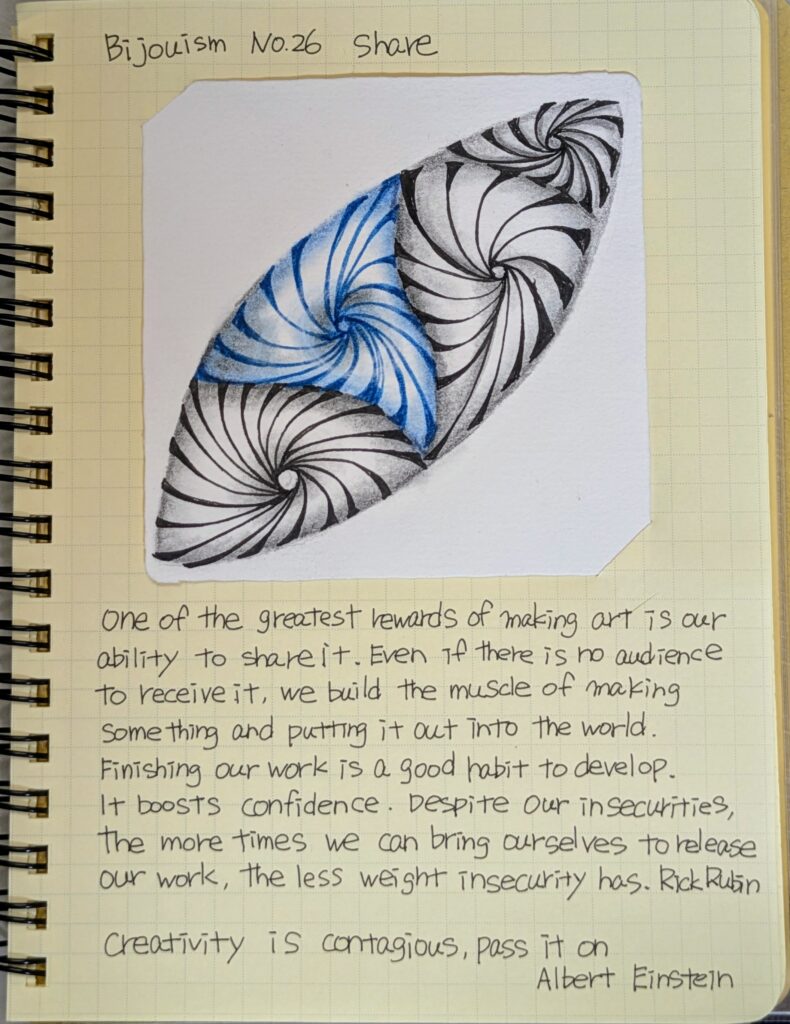 Bijouism No.26 Share
One of the greatest rewards of making art is our
ability to share it. Even if there is no audience
to receive it, we build the muscle of making
something and putting it out into the world.
Finishing our work is a good habit to develop.
It boosts confidence. Despite our insecurities,
the more times we can bring ourselves to release
our work, the less weight insecurity has. Rick Rubin
Creativity is contagious, pass it on
Albert Einstein